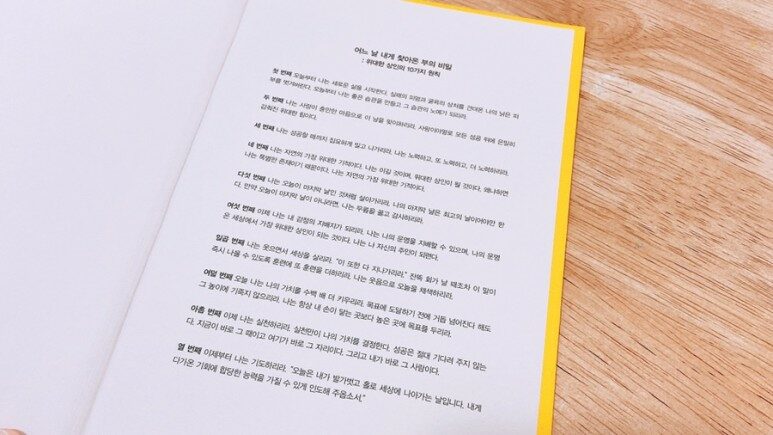 어느 날 내게 찾아온 부의 비밀
: 위대한 상인의 10가지 원칙
첫 번째 오늘부터 나는 새로운 삶을 시작한다. 실패의 피멍과 굴욕의 상처를 견뎌온 나의 낡은 피
부를 벗겨버린다. 오늘부터 나는 좋은 습관을 만들고 그 습관의 노예가 되리라.
두 번째 나는 사랑이 충만한 마음으로 이 날을 맞이하리라. 사랑이야말로 모든 성공 뒤에 은밀히
감춰진 위대한 힘이다.
세 번째 나는 성공할 때까지 집요하게 밀고 나가리라. 나는 노력하고, 또 노력하고, 더 노력하리라.
네 번째 나는 자연의 가장 위대한 기적이다. 나는 이길 것이며, 위대한 상인이 될 것이다. 왜냐하면
나는 특별한 존재이기 때문이다. 나는 자연의 가장 위대한 기적이다.
다섯 번째 나는 오늘이 마지막 날인 것처럼 살아가리라. 나의 마지막 날은 최고의 날이어야만 한
다. 만약 오늘이 마지막 날이 아니라면, 나는 무릎을 꿇고 감사하리라.
여섯 번째 이제 나는 내 감정의 지배자가 되리라. 나는 나의 운명을 지배할 수 있으며, 나의 운명
은 세상에서 가장 위대한 상인이 되는 것이다. 나는 나 자신의 주인이 되련다.
일곱 번째 나는 웃으면서 세상을 살리라. "이 또한 다 지나가리라." 잔뜩 화가 날 때조차 이 말이
즉시 나올 수 있도록 훈련에 또 훈련을 더하리라. 나는 웃음으로 오늘을 채색하리라.
여덟 번째 오늘 나는 나의 가치를 수백 배 더 키우리라. 목표에 도달하기 전에 거듭 넘어진다 해도
그 높이에 기죽지 않으리라. 나는 항상 내 손이 닿는 곳보다 높은 곳에 목표를 두리라.
아홉 번째 이제 나는 실천하리라. 실천만이 나의 가치를 결정한다. 성공은 절대 기다려 주지 않는
다. 지금이 바로 그 때이고 여기가 바로 그 자리이다. 그리고 내가 바로 그 사람이다.
열 번째 이제부터 나는 기도하리라. "오늘은 내가 발가벗고 홀로 세상에 나아가는 날입니다. 내게
다가온 기회에 합당한 능력을 가질 수 있게 인도해 주옵소서."